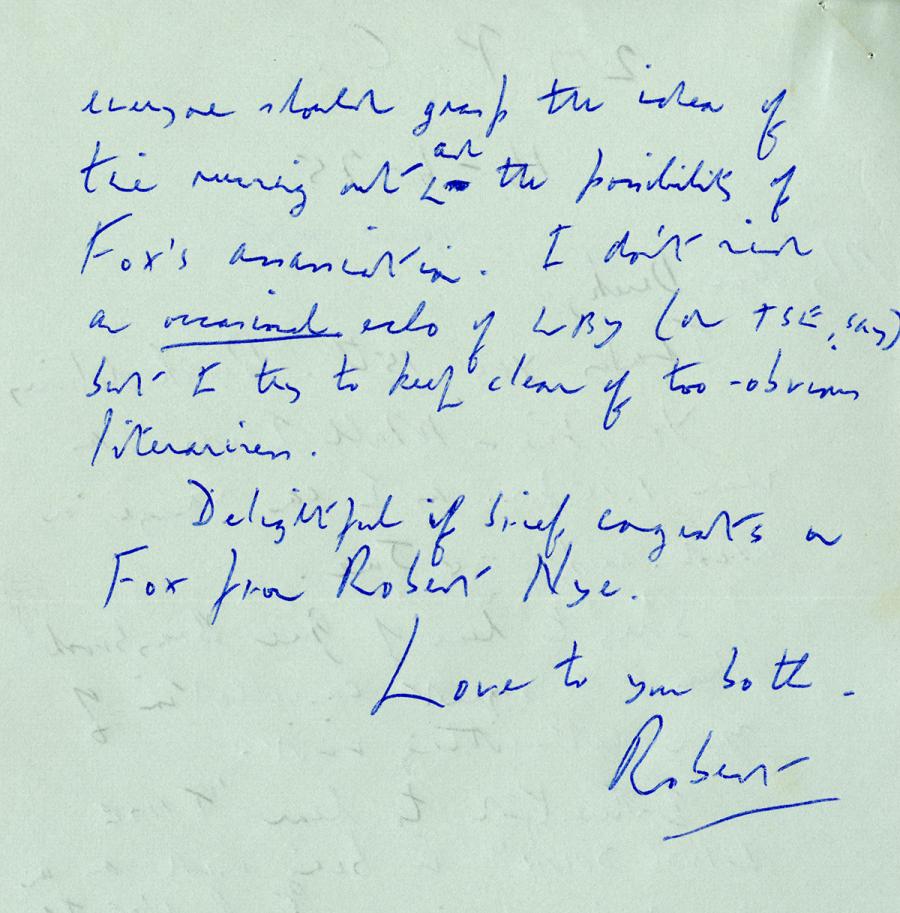 everyone should grasp the idea of
time running out and the possibility of
Fox's assassination. I don't mind
an occasional echo of WBY (or TSE, say)
but I try to keep clear of too-obvious
literariness.
Delightful if brief congrats on
Fox from Robert Nye.
Love to you both.
Robert